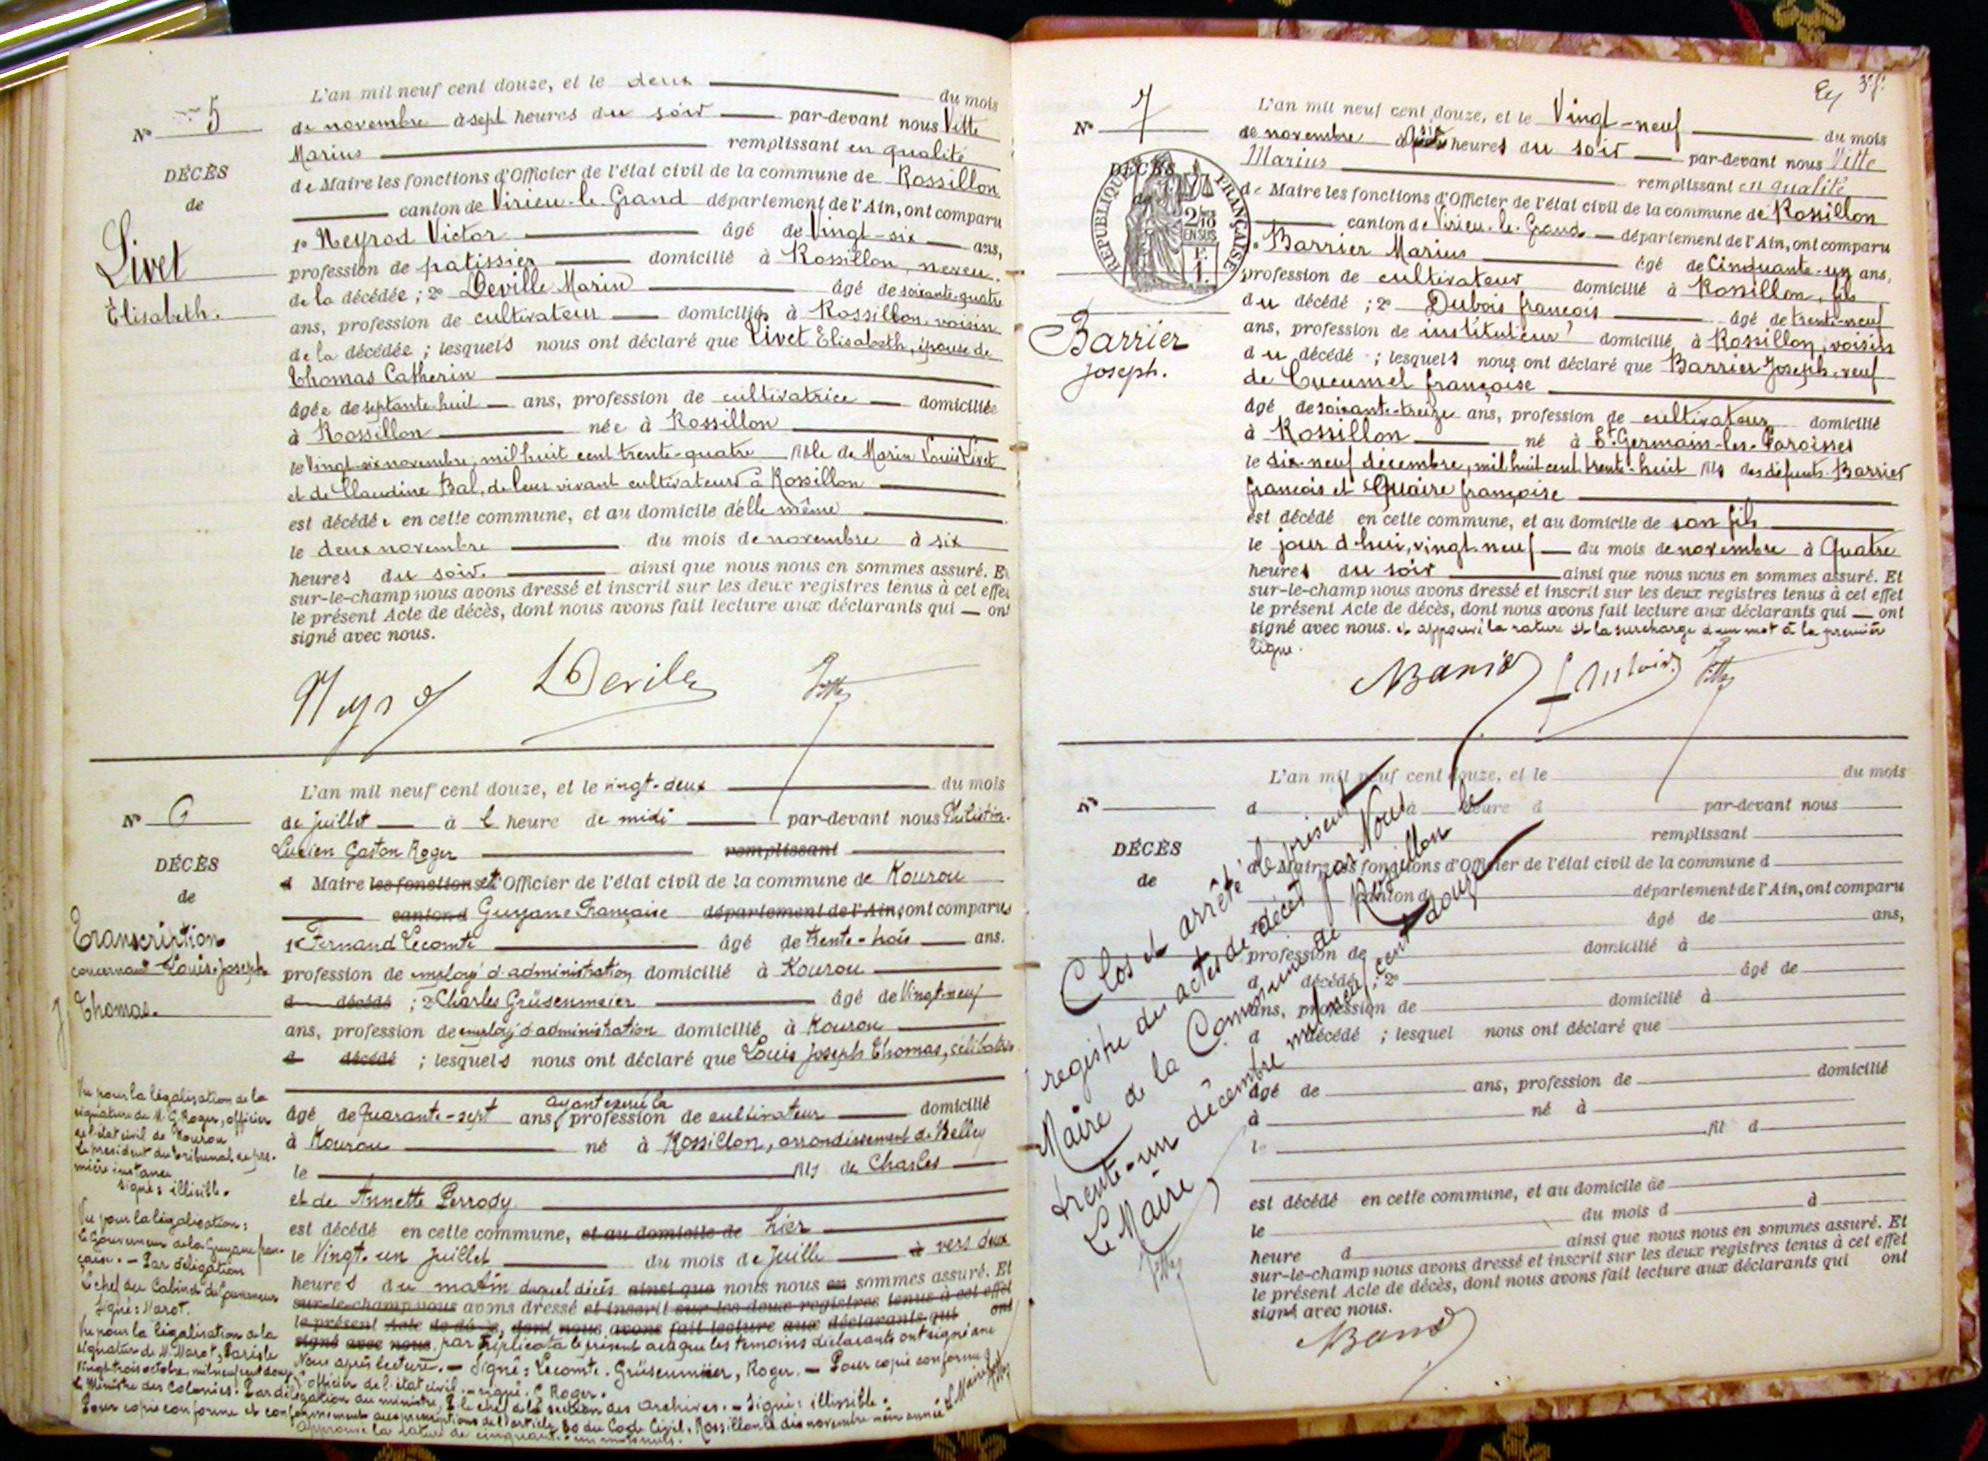 N° 5
DÉCÈS
de
Livet
Elisabeth.
L'an mil neuf cent douze, et le deux du mois
de novembre à sept heures du soir par-devant nous Vitte
Marius remplissant en qualité
de Maire les fonctions d'Officier de l'état civil de la commune de Rossillon
canton de Virieu-le-Grand département de l'Ain, ont comparu
1° Neyrod Victor âgé de Vingt-six ans,
profession de patissier domicilié à Rossillon, neveu
de la décédée ; 2° Deville Marin âgé de soixante-quatre
ans, profession de cultivateur domiciliés à Rossillon, voisin
de la décédée ; lesquels nous ont déclaré que Livet Elisabeth, épouse de
Thomas Catherin
âgée de septante huit ans, profession de cultivatrice domiciliée
à Rossillon née à Rossillon
le Vingt-six novembre, mil huit cent trente-quatre fille de Marin Louis Livet
et de Claudine Bal, de leur vivant cultivateurs à Rossillon
est décédée en cette commune, et au domicile d'elle même
le deux novembre du mois de novembre à six
heures du soir. ainsi que nous nous en sommes assuré. Et
sur-le-champ nous avons dressé et inscrit sur les deux registres tenus à cet effet
le présent Acte de décès, dont nous avons fait lecture aux déclarants qui ont
signé avec nous.
Devile Vitte
N° 6
DÉCÈS
de
Transcription
concernant Louis-Joseph
Thomas.
L'an mil neuf cent douze, et le vingt-deux du mois
de juillet à 1 heure de midi par-devant nous Philistin-
Lucien Gaston Roger remplissant
d Maire les fonctions et d'Officier de l'état civil de la commune de Kourou
canton d Guyane Française département de l'Ain, ont comparus
1° Fernand Lecomte âgé de trente-trois ans.
profession de employé d'administration domicilié à Kourou
d décédé ; 2° Charles Grüsenmeier âgé de Vingt-neuf
ans, profession de employé d'administration domicilié à Kourou
d décédé ; lesquels nous ont déclaré que Louis Joseph Thomas, célibataire
âgé de Quarante-sept ans, ayant exercé la profession de cultivateur domicilié
à Kourou né à Rossillon, arrondissement de Belley
le fils de Charles
et de Annette Perrody
est décédé en cette commune, et au domicile de hier
le Vingt-un juillet du mois de Juillet à vers deux
heures du matin duquel décès ainsi que nous nous en sommes assuré. Et
sur-le-champ nous avons dressé et inscrit sur les deux registres tenus à cet effet
le présent Acte de décès, dont nous avons fait lecture aux déclarants qui ont
signé avec nous. par triplicata le présent acte que les témoins déclarants ont signé avec
Nous après lecture. — Signé : Lecomte. Grüsenmeier, Roger. — Pour copie conforme
l'officier de l'état civil. — signé : G Roger.
Vu pour la légalisation de la
signature de M. G. Roger, officier
de l'état civil de Kourou
Le président du tribunal de pre-
mière instance
signé : illisible.
Vu pour la légalisation :
Le Gouverneur de la Guyane fran-
çaise. — Par délégation
Le chef du Cabinet du Gouverneur
Signé : Marot.
Vu pour la légalisation de la
signature de M. Marot, Paris le
Vingt trois octobre, mil neuf cent douze
le Ministre des Colonies. Par délégation du ministre, le chef de la section des archives. — Signé : illisible.
Pour copie conforme et conformément aux prescriptions de l'article 80 du Code Civil. Rossillon le dix novembre même année Le Maire Vitte
Approuvé la rature de cinquante-un mots nuls.
3 f.
N° 7
DÉCÈS
de
RÉPUBLIQUE FRANÇAISE
2/10 EN SUS
Barrier
Joseph.
L'an mil neuf cent douze, et le Vingt-neuf du mois
de novembre à six heures du soir par-devant nous Vitte
Marius remplissant en qualité
de Maire les fonctions d'Officier de l'état civil de la commune de Rossillon
canton de Virieu-le-Grand département de l'Ain, ont comparu
1° Barrier Marius âgé de Cinquante-un ans,
profession de cultivateur domicilié à Rossillon, fils
du décédé ; 2° Dubois françois âgé de trente-neuf
ans, profession de instituteur domicilié à Rossillon, voisin
du décédé ; lesquels nous ont déclaré que Barrier Joseph, veuf
de Cucumel françoise
âgé de soixante-treize ans, profession de cultivateur domicilié
à Rossillon né à St Germain-les-Paroisses
le dix-neuf décembre, mil huit cent trente-huit fils des défunts Barrier
francois et Quaire françoise
est décédé en cette commune, et au domicile de son fils
le jour d'hui, vingt-neuf du mois de novembre à Quatre
heures du soir ainsi que nous nous en sommes assuré. Et
sur-le-champ nous avons dressé et inscrit sur les deux registres tenus à cet effet
le présent Acte de décès, dont nous avons fait lecture aux déclarants qui ont
signé avec nous. et approuvé la rature et la surcharge d'un mot à la première
ligne.
Barrier F Dubois Vitte
N°
DÉCÈS
de
L'an mil neuf cent douze, et le du mois
d à heure d par-devant nous
remplissant
d Maire les fonctions d'Officier de l'état civil de la commune d
canton d département de l'Ain, ont comparu
âgé de ans,
profession de domicilié à
d décédé ; 2° âgé de
ans, profession de domicilié à
d décédé ; lesquel nous ont déclaré que
âgé de ans, profession de domicilié
à né à
le fil d
est décédé en cette commune, et au domicile de
le du mois d à
heure d ainsi que nous nous en sommes assuré. Et
sur-le-champ nous avons dressé et inscrit sur les deux registres tenus à cet effet
le présent Acte de décès, dont nous avons fait lecture aux déclarants qui ont
signé avec nous.
Clos et arrêté le présent
registre des actes de décès par Nous le
Maire de la Commune de Rossillon
trente-un décembre mil neuf cent douze
Le Maire,
Vitte